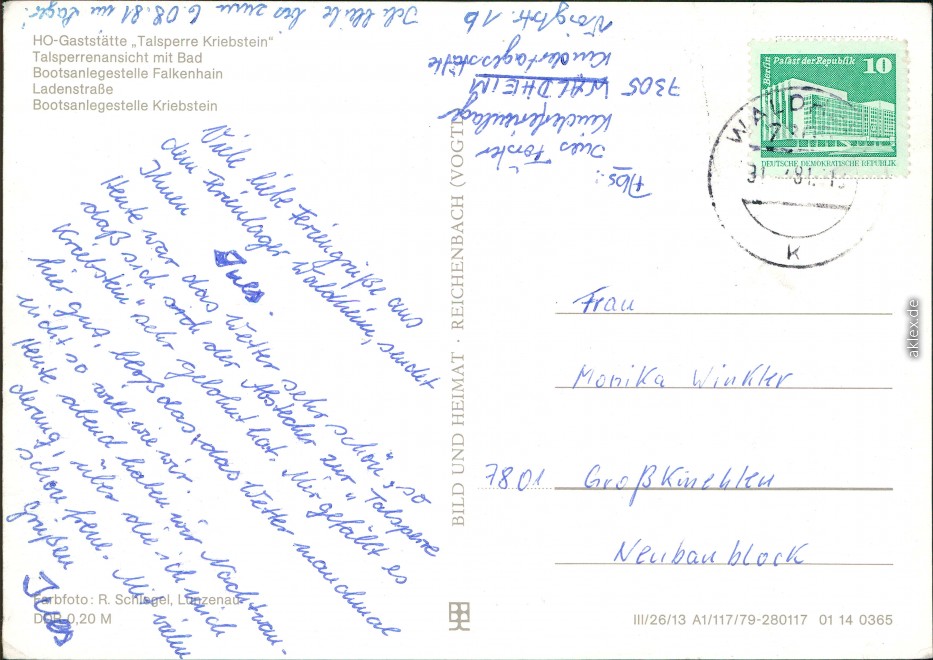 HO-Gaststätte „Talsperre Kriebstein"
Talsperrenansicht mit Bad
Bootsanlegestelle Falkenhain
Ladenstraße
Bootsanlegestelle Kriebstein
Viele liebe Feriengrüße aus
dem Ferienlager Waldheim, sendet
Ihnen Ines.
Heute war das Wetter sehr schön, so
daß sich der Abstecher zur „Talsperre
Kriebstein" sehr gelohnt hat. Mir gefällt es
hier gut, bloß das, das Wetter manchmal
nicht so will wie wir.
Heute abend haben wir Nachtwan-
derung, über die ich mich
schon freue. Mit vielen
grüßen
Ines
Ich bleibe bis zum 6.08.81 im Lager!
Abs.:
Ines Förster
Kinderferienlager
7305 WALDHEIM
Kindertagesstätte
Voigtstr. 1b
Berlin Palast der Republik 10
DEUTSCHE DEMOKRATISCHE REPUBLIK
WALDH
31. 81.
k
BILD UND HEIMAT · REICHENBACH (VOGTL
Frau
Monika Winkler
7801 Großkmehlen
Neubaublock
Farbfoto: R. Schlegel, Lunzenau
DDR 0,20 M
III/26/13 A1/117/79-280117 01 14 0365
aklex.de